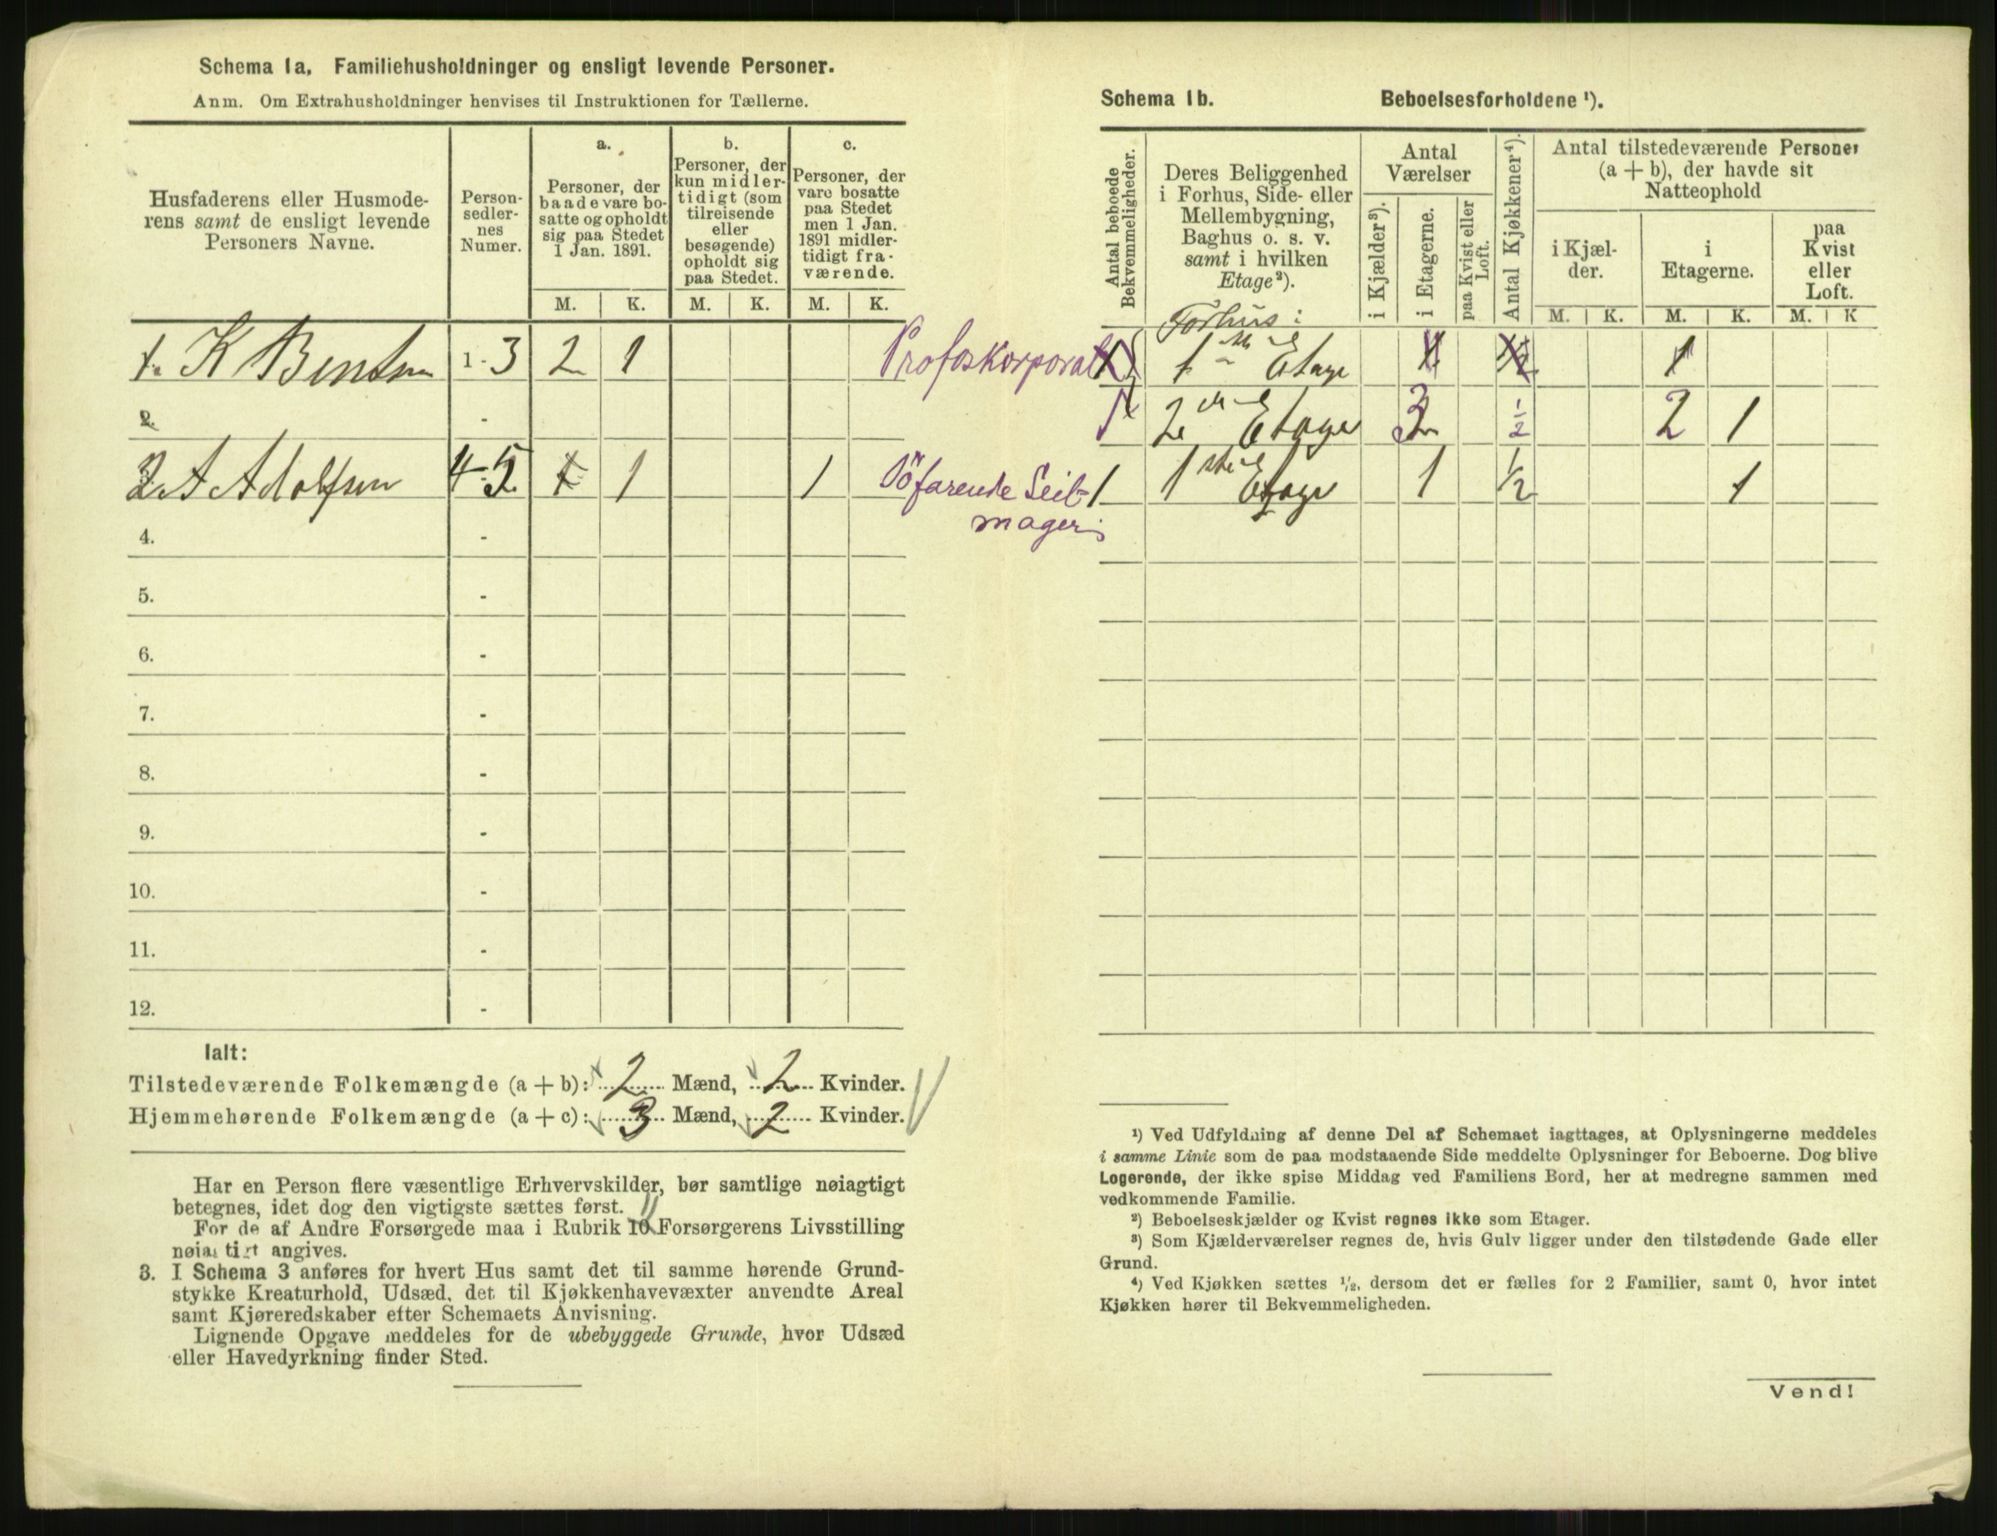 Schema 1a. Familiehusholdninger og ensligt levende Personer.
Anm. Om Extrahusholdninger henvises til Instruktionen for Tællerne.
Husfaderens eller Husmode-
rens samt de ensligt levende
Personers Navne.
Person-
sedler-
nes
Numer.
a.
Personer, der
baade vare bo-
satte og opholdt
sig paa Stedet
1 Jan. 1891.
b.
Personer, der
kun midler-
tidigt (som
tilreisende
eller
besøgende)
opholdt sig
paa Stedet.
c.
Personer, der
vare bosatte
paa Stedet
men 1 Jan.
1891 midler-
tidigt fra-
værende.
M. K. M. K. M. K.
1. K Bentsen 1-3 2 1 Profoskorporal
2. -
2. A Adolfsen 4-5 1 1 1 Söfarende Seil-
mager;
4. -
5. -
6. -
7. -
8. -
9. -
10. -
11. -
12. -
Ialt:
Tilstedeværende Folkemængde (a + b): 2 Mænd, 2 Kvinder.
Hjemmehørende Folkemængde (a + c): 3 Mænd, 2 Kvinder.
Har en Person flere væsentlige Erhvervskilder, bør samtlige nøiagtigt
betegnes, idet dog den vigtigste sættes først.
For de af Andre Forsørgede maa i Rubrik 10 11 Forsørgerens Livsstilling
nøiagtigt angives.
3. I Schema 3 anføres for hvert Hus samt det til samme hørende Grund-
stykke Kreaturhold, Udsæd, det til Kjøkkenhavevæxter anvendte Areal
samt Kjøreredskaber efter Schemaets Anvisning.
Lignende Opgave meddeles for de ubebyggede Grunde, hvor Udsæd
eller Havedyrkning finder Sted.
Schema 1b. Beboelsesforholdene ¹).
Antal beboede
Bekvemmeligheder.
Deres Beliggenhed
i Forhus, Side- eller
Mellembygning,
Baghus o. s. v.
samt i hvilken
Etage²).
Antal
Værelser
i Kjælder³).
i Etagerne.
paa Kvist eller
Loft.
Antal Kjøkkener⁴).
Antal tilstedeværende Personer
(a + b), der havde sit
Natteophold
i Kjæl-
der.
i
Etagerne.
paa
Kvist
eller
Loft.
M. K. M. K. M. K
Forhus:
1 1ste Etage 1 1/2 1
1 2den Etage 3 1/2 2 1
1 1ste Etage 1 1/2 1
¹) Ved Udfyldning af denne Del af Schemaet iagttages, at Oplysningerne meddeles
i samme Linie som de paa modstaaende Side meddelte Oplysninger for Beboerne. Dog blive
Logerende, der ikke spise Middag ved Familiens Bord, her at medregne sammen med
vedkommende Familie.
²) Beboelseskjælder og Kvist regnes ikke som Etager.
³) Som Kjælderværelser regnes de, hvis Gulv ligger under den tilstødende Gade eller
Grund.
⁴) Ved Kjøkken sættes ¹/₂, dersom det er fælles for 2 Familier, samt 0, hvor intet
Kjøkken hører til Bekvemmeligheden.
Vend!